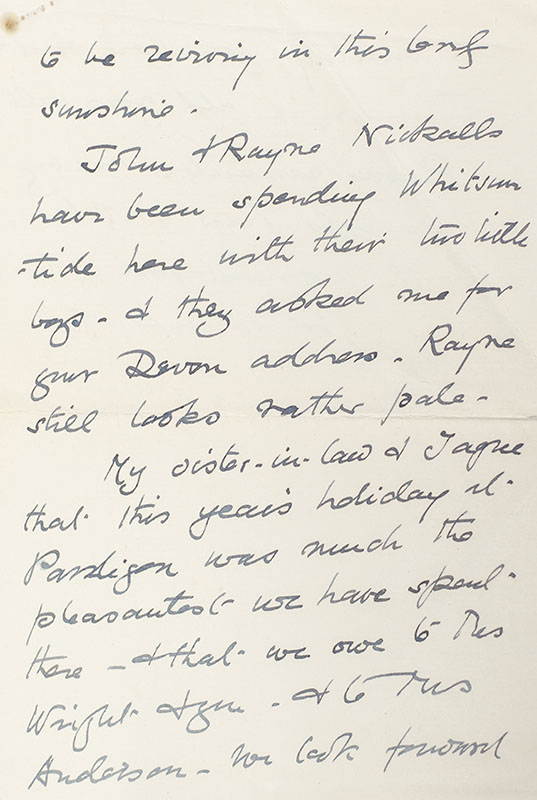 to be reviving in this
sunshine.
John & Rayne Nickalls
have been spending Whitsun
-tide here with their two little
boys - & they asked me for
your Devon address. Rayne
still looks rather pale -
My sister-in-law & I agree
that this year's holiday at
Pardigon was much the
pleasantest we have spent
there - & that we owe to Mrs
Wright & you - & to Mrs
Anderson - We look forward